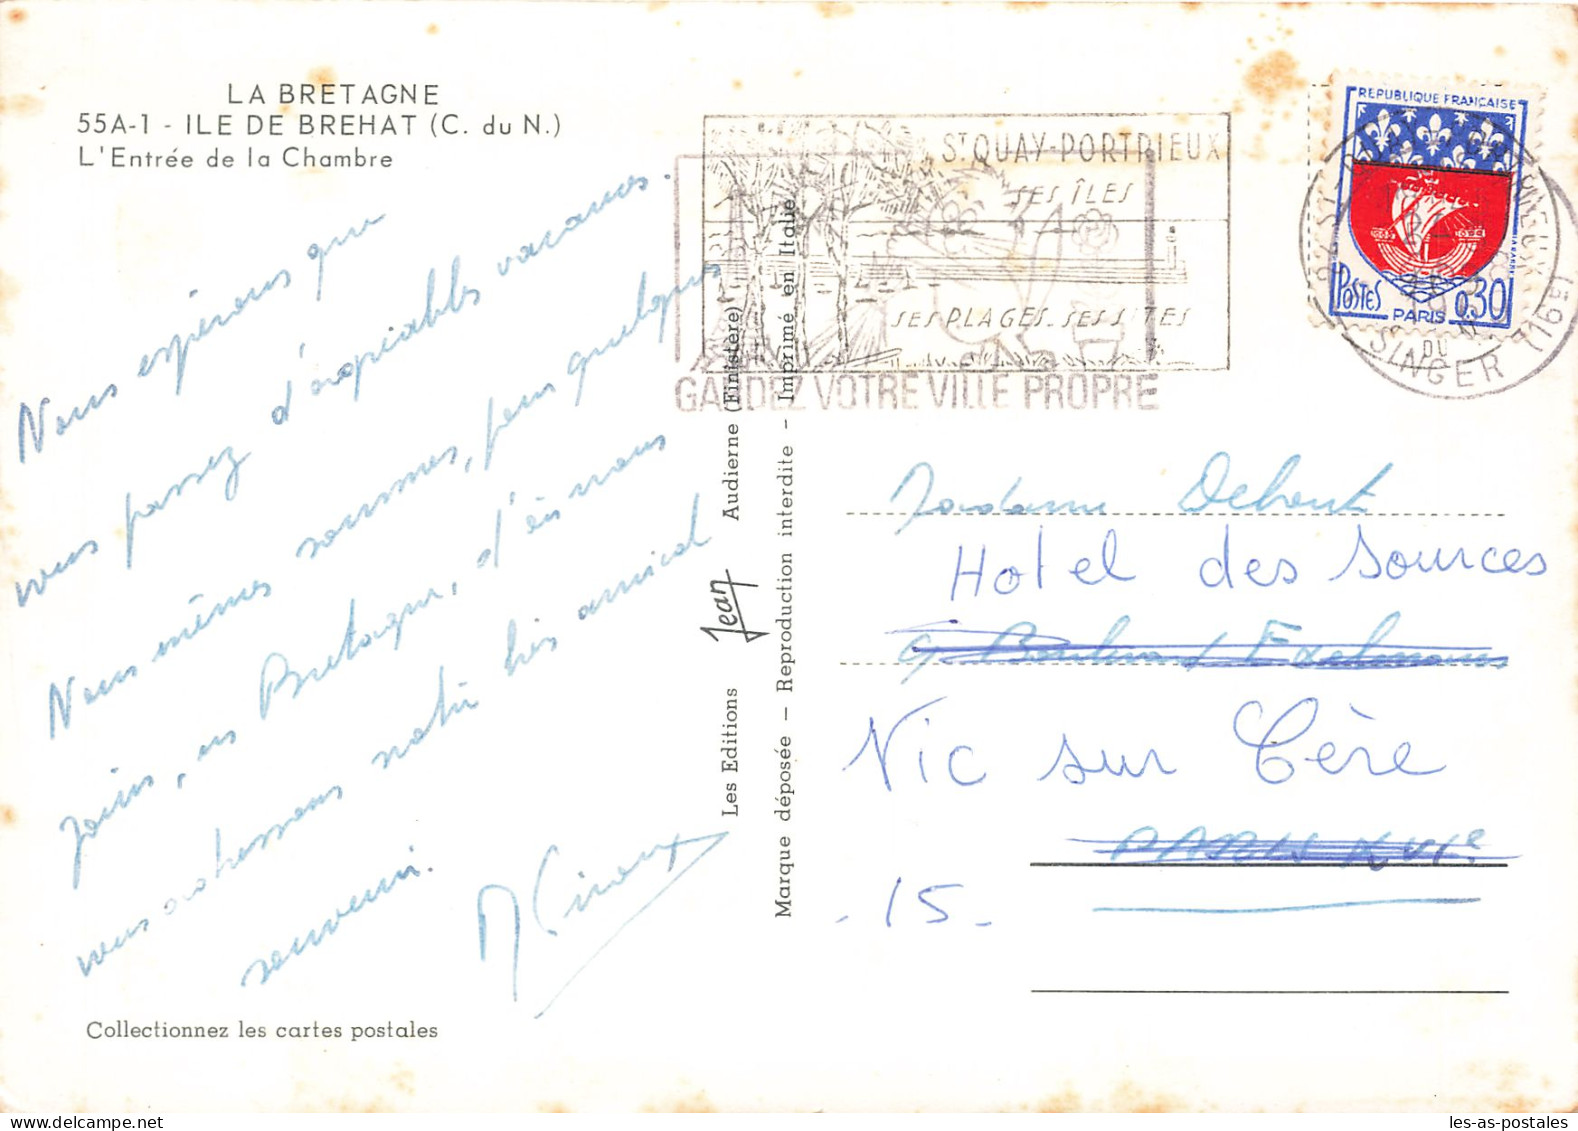 LA BRETAGNE
55A-1 - ILE DE BREHAT (C. du N.)
L'Entrée de la Chambre
Nous espérons que
vous passez d'agréables vacances.
Nous mêmes sommes, pour quelques
jours, en Bretagne, d'où nous
vous adressons notre très amical
souvenir.
Collectionnez les cartes postales
Les Editions Jean Audierne (Finistère)
Marque déposée — Reproduction interdite — Imprimé en Italie
ST QUAY-PORTRIEUX
SES ÎLES
SES PLAGES. SES SITES
GARDEZ VOTRE VILLE PROPRE
REPUBLIQUE FRANÇAISE
POSTES
PARIS
0,30
DU
SINGER (16e)
Madame
Hotel des Sources
9 Boulevard Exelmans
Vic sur Cère
PARIS XVIe
- 15 -
les-as-postales